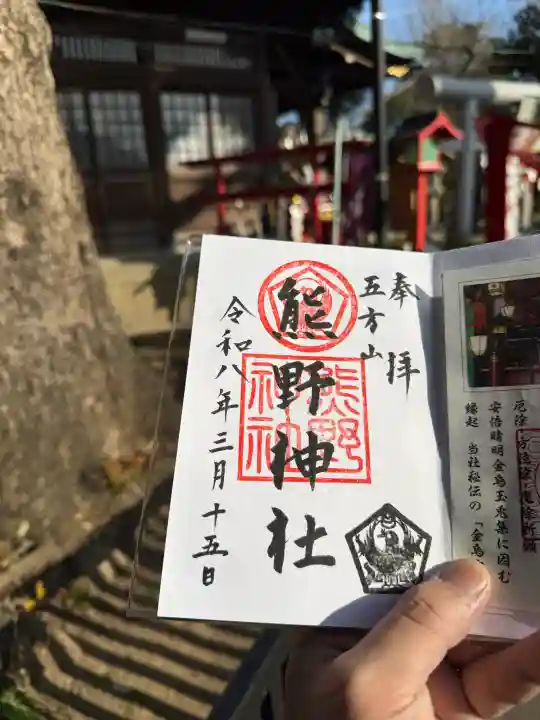 奉拝
五方山
熊野神社
熊野
神社
令和八年三月十五日
厄除
安倍晴明金烏玉兎集に因む
縁起 当社秘伝の「金烏